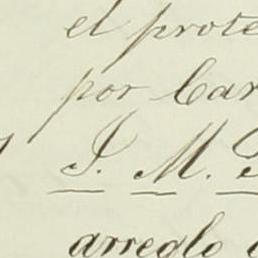 el prote
por Car
J. M. B
arreglo